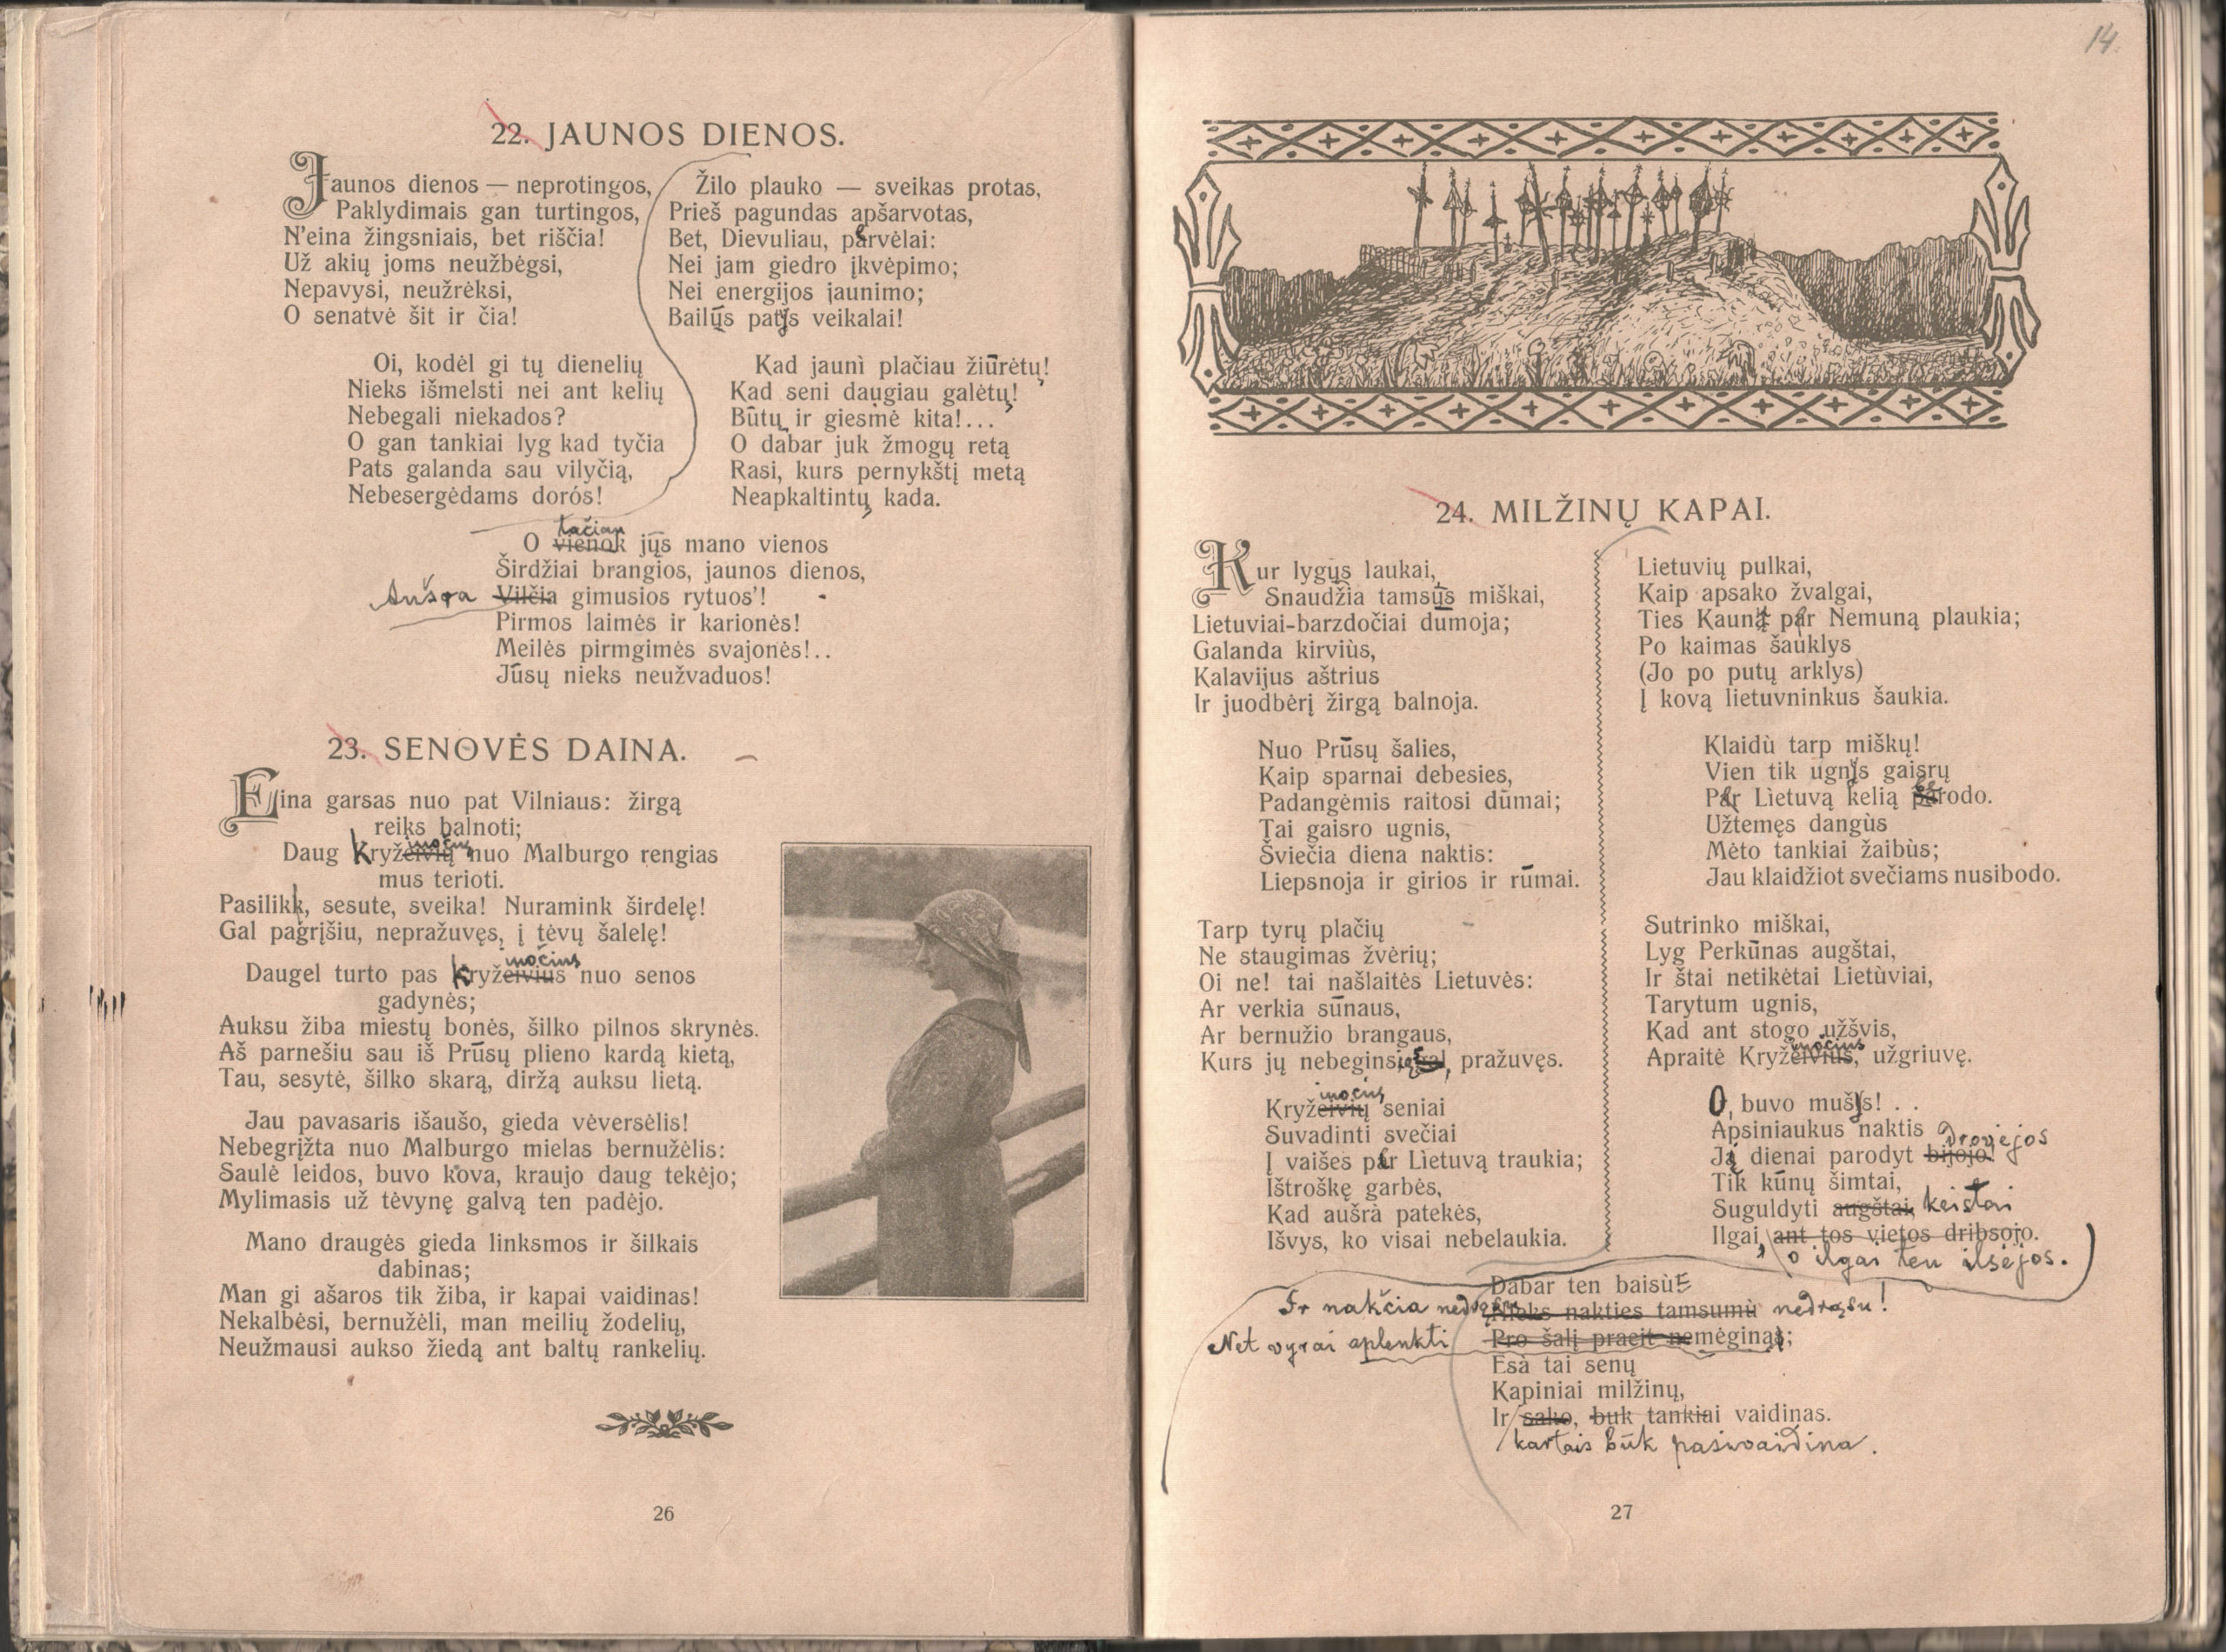 14.
22. JAUNOS DIENOS.
Jaunos dienos — neprotingos,
Paklydimais gan turtingos,
N'eina žingsniais, bet riščia!
Už akių joms neužbėgsi,
Nepavysi, neužrėksi,
O senatvė šit ir čia!
Oi, kodėl gi tų dienelių
Nieks išmelsti nei ant kelių
Nebegali niekados?
O gan tankiai lyg kad tyčia
Pats galanda sau vilyčią,
Nebesergėdams dorós!
Žilo plauko — sveikas protas,
Prieš pagundas apšarvotas,
Bet, Dievuliau, pervėlai:
Nei jam giedro įkvėpimo;
Nei energijos jaunimo;
Bailųs patys veikalai!
Kad jaunì plačiau žiūrėtų!
Kad seni daugiau galėtų!
Būtų ir giesmė kita!...
O dabar juk žmogų retą
Rasi, kurs pernykštį metą
Neapkaltintų kada.
tačiau
O vienok jųs mano vienos
Širdžiai brangios, jaunos dienos,
Aušra Vilčia gimusios rytuos'!
Pirmos laimės ir karionės!
Meilės pirmgimės svajonės!..
Jūsų nieks neužvaduos!
23. SENOVĖS DAINA.
Eina garsas nuo pat Vilniaus: žirgą
reiks balnoti;
močių
Daug Kryžeivių nuo Malburgo rengias
mus terioti.
Pasilikk, sesute, sveika! Nuramink širdelę!
Gal pagrįšiu, nepražuvęs, į tėvų šalelę!
močius
Daugel turto pas Kryžeivius nuo senos
gadynės;
Auksu žiba miestų bonės, šilko pilnos skrynės.
Aš parnešiu sau iš Prūsų plieno kardą kietą,
Tau, sesytė, šilko skarą, diržą auksu lietą.
Jau pavasaris išaušo, gieda vėversėlis!
Nebegrįžta nuo Malburgo mielas bernužėlis:
Saulė leidos, buvo kova, kraujo daug tekėjo;
Mylimasis už tėvynę galvą ten padėjo.
Mano draugės gieda linksmos ir šilkais
dabinas;
Man gi ašaros tik žiba, ir kapai vaidinas!
Nekalbėsi, bernužėli, man meilių žodelių,
Neužmausi aukso žiedą ant baltų rankelių.
26
24. MILŽINŲ KAPAI.
Kur lygųs laukai,
Snaudžia tamsūs miškai,
Lietuviai-barzdočiai dūmoja;
Galanda kirviùs,
Kalavijus aštrius
Ir juodbėrį žirgą balnoja.
Nuo Prūsų šalies,
Kaip sparnai debesies,
Padangėmis raitosi dūmai;
Tai gaisro ugnis,
Šviečia diena naktis:
Liepsnoja ir girios ir rūmai.
Tarp tyrų plačių
Ne staugimas žvėrių;
Oi ne! tai našlaitės Lietuvės:
Ar verkia sūnaus,
Ar bernužio brangaus,
Kurs jų nebeginsią, pražuvęs.
močių
Kryžeivių seniai
Suvadinti svečiai
Į vaišes per Lietuvą traukia;
Ištroškę garbės,
Kad aušrà patekės,
Išvys, ko visai nebelaukia.
Lietuvių pulkai,
Kaip apsako žvalgai,
Ties Kaunu per Nemuną plaukia;
Po kaimas šauklys
(Jo po putų arklys)
Į kovą lietuvninkus šaukia.
Klaidù tarp miškų!
Vien tik ugnys gaisrų
Per Lietuvą kelią berodo.
Užtemęs dangùs
Mėto tankiai žaibùs;
Jau klaidžiot svečiams nusibodo.
Sutrinko miškai,
Lyg Perkūnas augštai,
Ir štai netikėtai Lietùviai,
Tarytum ugnis,
Kad ant stogo užšvis,
močius
Apraitė Kryžeivius, užgriuvę.
O, buvo mušys! . .
Apsiniaukus naktis
Ją dienai parodyt bijojo! drovėjos
Tik kūnų šimtai,
Suguldyti augštai, keistai
Ilgai, ant tos vietos dribsojo.
o ilgai ten ilsėjos.
Dabar ten baisù
Ir nakčia nedrąsu Nieks nakties tamsumù nedrąsu!
Net vyrai aplenkti Pro šalį praeit nemėgina;
Esà tai senų
Kapiniai milžinų,
Ir sako, buk tankiai vaidinas.
kartais būk pasivaidina.
27